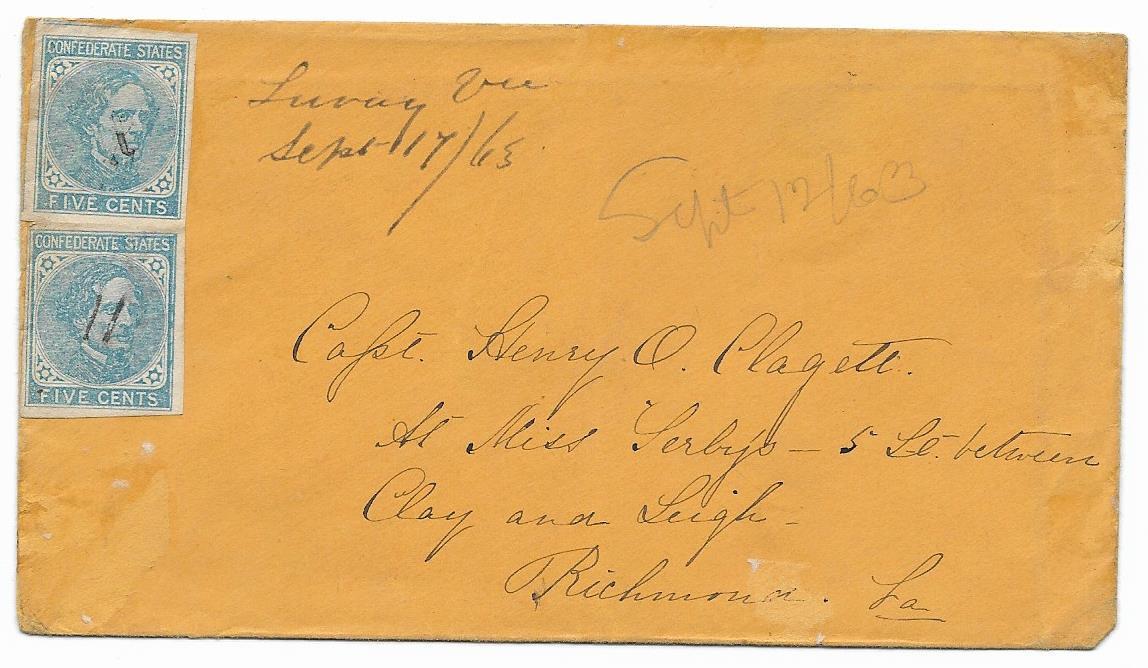 CONFEDERATE STATES
FIVE CENTS
CONFEDERATE STATES
FIVE CENTS
Luray
Sept 17/63
Sept 17/63
Capt. Henry O. Clagett.
At Miss - 5 St. between
Clay and Leigh -
Richmond. Va